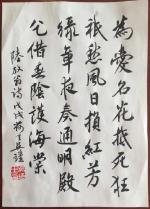 為愛名花抵死狂
祇愁風日損紅芳
綠章夜奏通明殿
乞借春陰護海棠
陸放翁詩戊戌